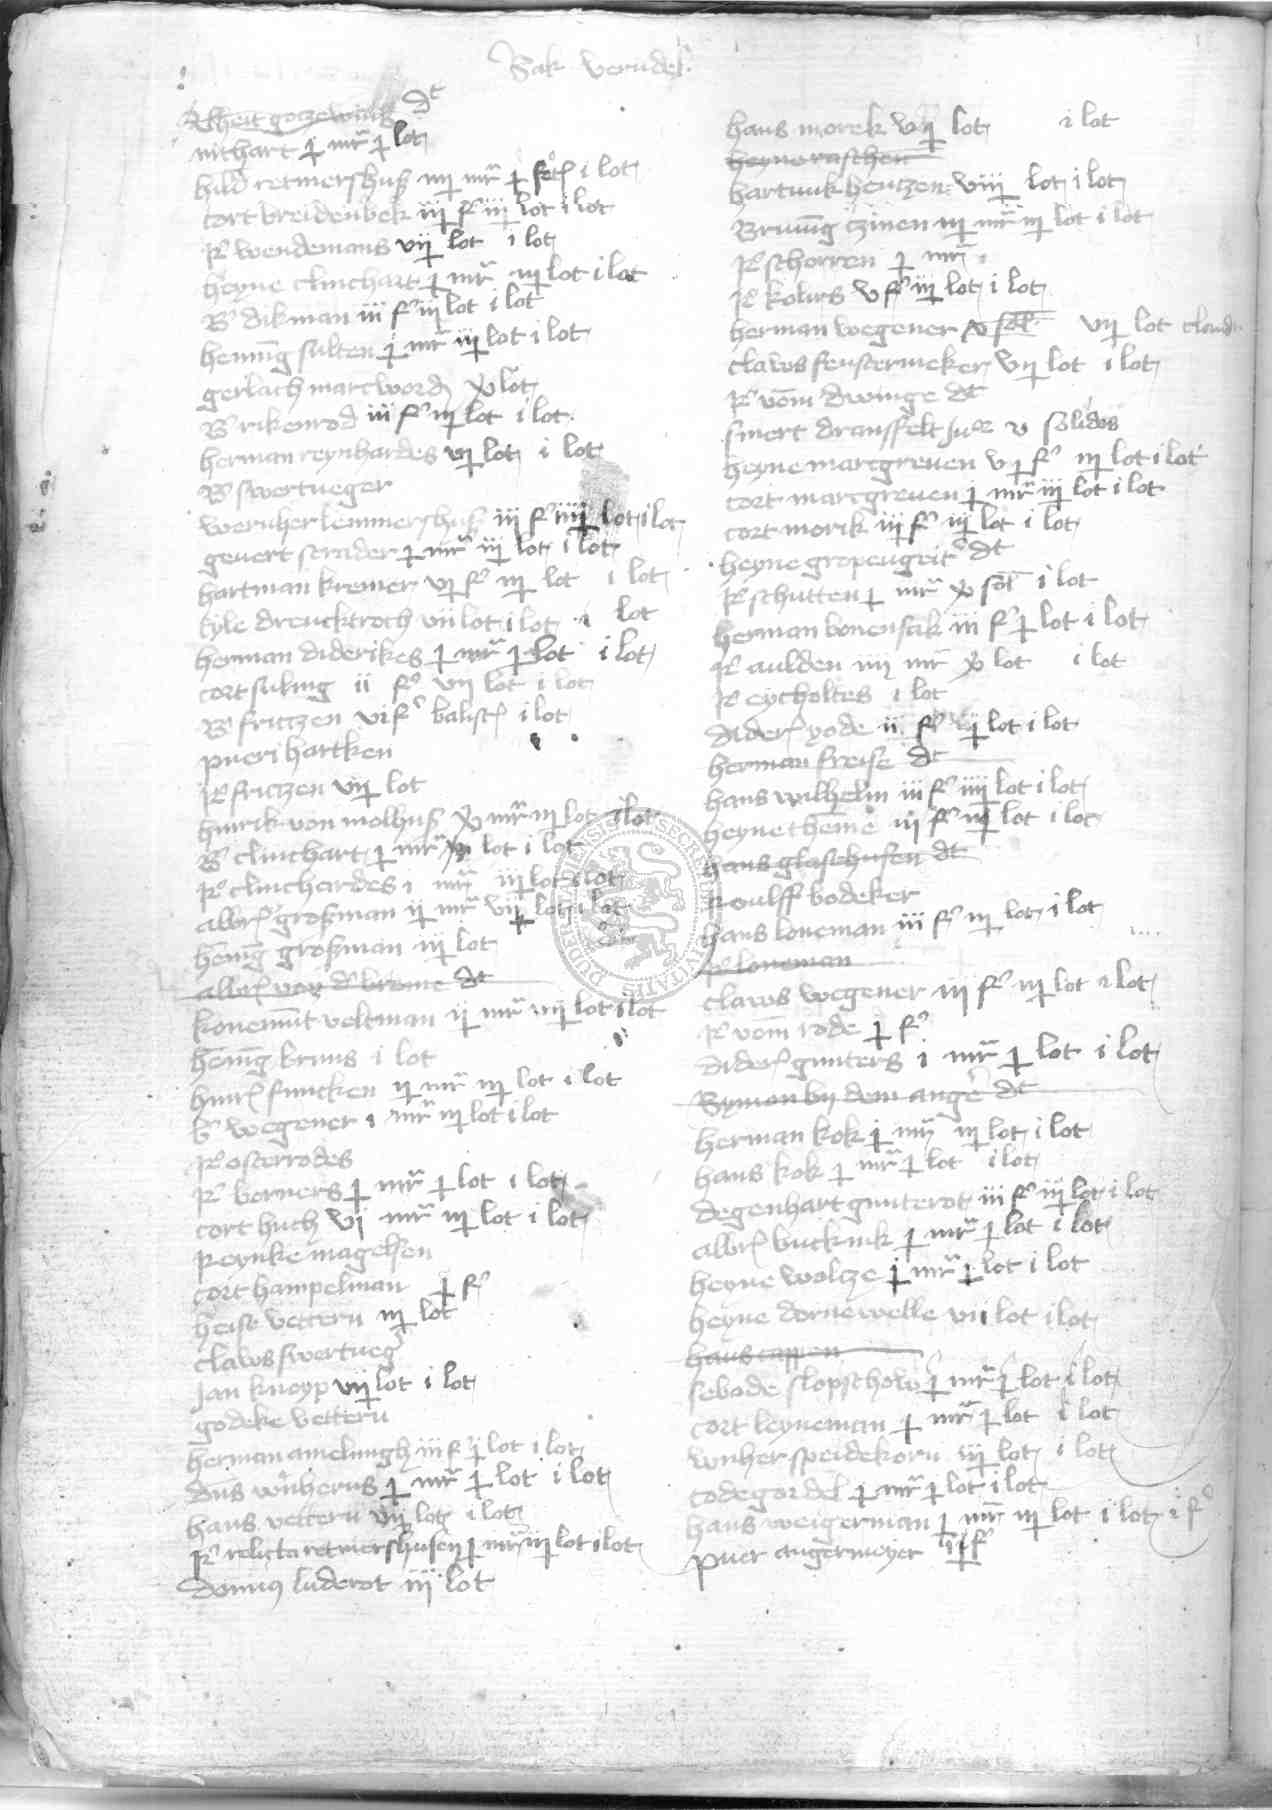 Sak verudes
Alheit gotzewinß dt
nithart i mr i lot
hild retmershuß iiij mr i lot i lot
cort breidenbek iij f iij lot i lot
R wendemans vij lot i lot
heyne clinchart i mr iij lot i lot
B dikman iii f iij lot i lot
henning sulten i mr iij lot i lot
gerlach marcword lot
B rikenrod iii f iij lot i lot
herman reynhardes vij lot i lot
B swertueger
wernher lemmershuß iii f iiij lot i lot
geuert scrader i mr iij lot i lot
hartman kremer vj f iij lot i lot
tyle drencktroch vii lot i lot i lot
herman diderikes i mr i lot i lot
cort suling ii f vij lot i lot
B fritzen vi f i lot
pueri hartken
R fritzen vij lot
hinrik von molhuß mr iij lot i lot
B clinchart i mr lot i lot
R clinchardes i mr iij lot i lot
albr großman ij mr vij lot i lot
hening großman iij lot
albr von d breme dt
konemut veltman ij mr iiij lot i lot
hening bruns i lot
hinr funcken ij mr iij lot i lot
wegener i mr iij lot i lot
R osterrodes
R borners i mr i lot i lot
cort huch vi mr iij lot i lot
Reynke magelsen
cort hampelman i f
heise vettern iij lot
claws swertueg
Jan knoyp vij lot i lot
godeke vettern
herman amelungh iii f i lot i lot
dns wnherus i mr i lot i lot
hans vettern vij lot i lot
R relicta retmershusen i mr iij lot i lot
domus luderot iij lot
hans morek vij lot i lot
heyne raschen
hartwik hentzen viij lot i lot
Bruning tzinen iij mr iij lot i lot
R schorren i mr
R kolues v f iij lot i lot
herman wegener vij lot
claws fenstermeker vij lot i lot
R vom dwinge dt
smert dransfelt v solidos
heyne marcgreuen v f iij lot i lot
cort marcgreuen i mr iij lot i lot
cort morik iij f iij lot i lot
heyne gropengeit dt
R schutten i mr i lot
herman bonensak iii f i lot i lot
R aulden iiij mr lot i lot
R eycholtes i lot
dider rode ii f vij lot i lot
herman freise dt
hans wilhelm iii f iiij lot i lot
heyne theme iij f iij lot i lot
hans glasehusen dt
Roulff bodeker
hans loneman iii f iij lot i lot
R loneman
claws wegener iij f iij lot i lot
R vom rode i f
dider gunters i mr i lot i lot
Symon by dem anger dt
herman kok i mr iij lot i lot
hans kok i mr i lot i lot
degenhart gunterot iii f iij lot i lot
albr buckink i mr i lot i lot
heyne woltze i mr i lot i lot
heyne dornewelle vii lot i lot
hans cappen
sebode slopschow i mr i lot i lot
cort leyneman i mr i lot i lot
wnher speidekorn iij lot i lot
codegordel i mr i lot i lot
hans weigerman i mr iij lot i lot i f
puer angermeyer f